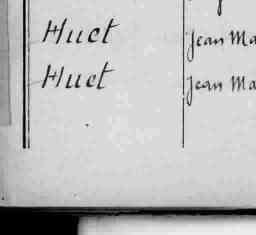 Huet Jean Ma
Huet Jean Ma